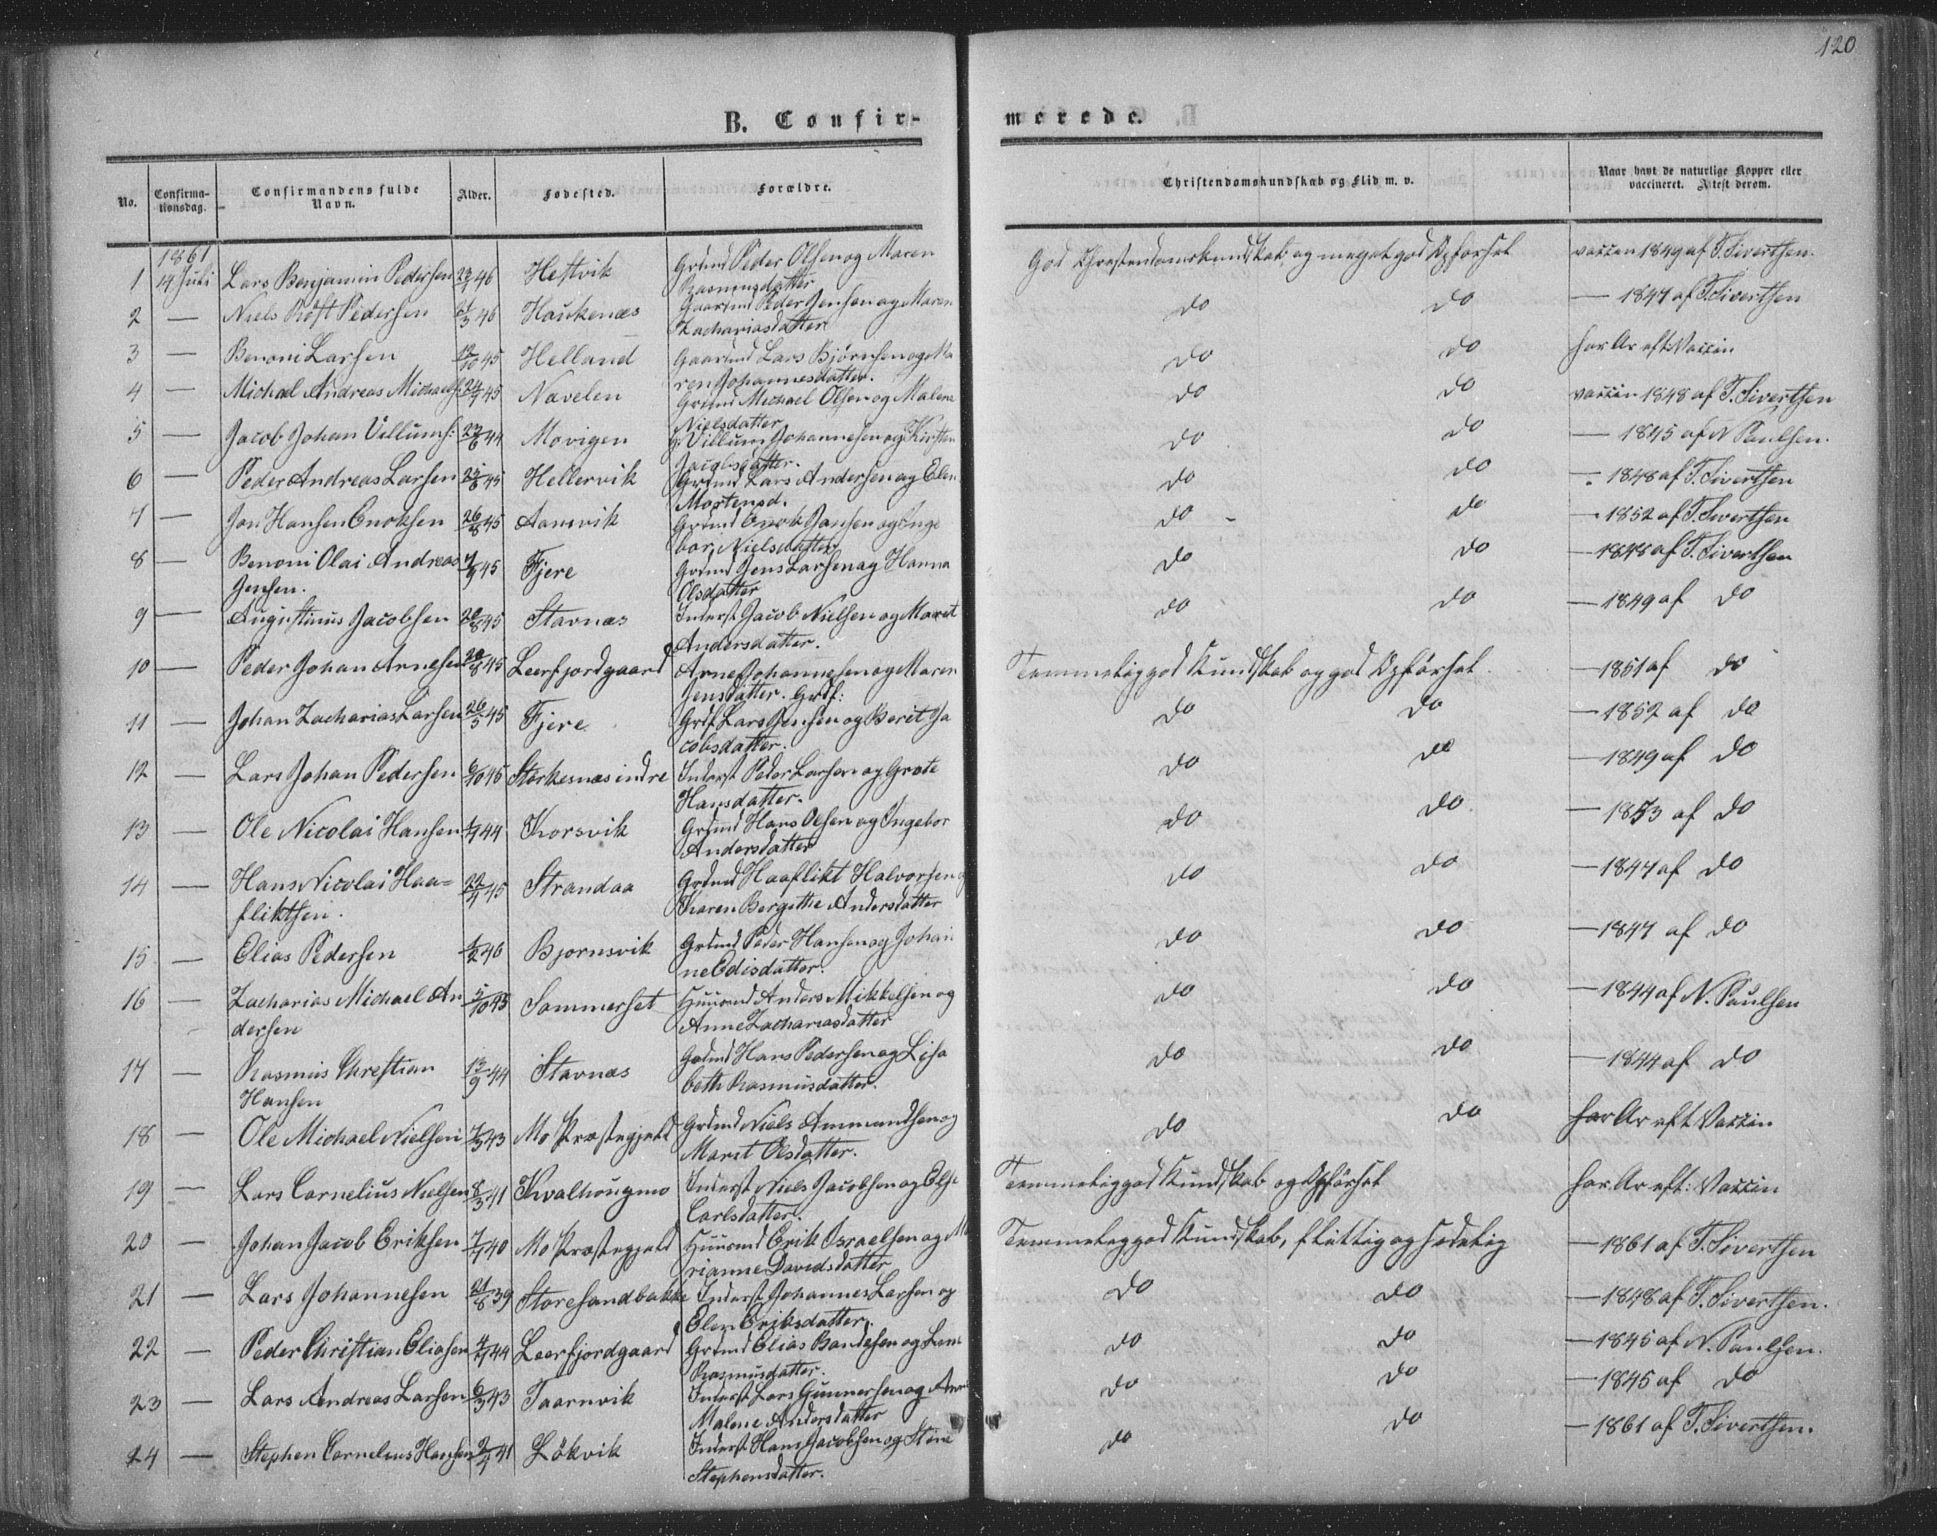 120
B. Confir-
merede.
No.
Confirma-
tionsdag.
Confirmandens fulde
Navn.
Alder.
Fødested.
Forældre.
Christendomskundskab og Flid m. v.
Naar havt de naturlige Kopper eller
vaccineret. Attest derom.
1861
1 14 Juli Lars Benjamin Pedersen 46 Hestvik Grdmd Peder Olsen og Maren God Christendomskundskab og meget god Opførsel vaccin 1849 af T. Sivertsen.
Rasmusdatter
2 — Niels Røst Pedersen 46 Haukenæs Gaardmd Peder Jensen og Maren do do — 1847 af T. Sivertsen
Zachariasdatter
3 — Benoni Larsen 45 Helland Gaardmd Lars Bjørnsen og Ma do do har Ar eft Vaccin
ren Johannesdatter.
4 — Michael Andreas Michaels: 45 Navelen Grdmd Michael Olsen og Malene do do vaccin 1848 af T. Sivertsen
Nielsdatter
5 — Jacob Johan Villums: 44 Movigen Villum Johannesen og Kirsten do do — 1845 af N Paulsen.
Jacobsdatter.
6 — Peder Andreas Larsen 45 Hellervik Grdmd Lars Andersen og Elen do do 1848 af T. Sivertsen
Mortensd.
7 — Jon Hansen Enoksen 26/8 45 Aansvik Grdmd Enok Hansen og Inge do do 1852 af T. Sivertsen
bor Nielsdatter
8 — Benoni Olai Andreas 45 Fjere Grdmd Jens Larsen og Hanna do do — 1848 af T. Sivertsen
Jensen. Olsdatter
9 — Augustinus Jacobsen 45 Stavnæs Inderst Jacob Nielsen og Maret do do — 1849 af do
Andersdatter.
10 — Peder Johan Arnesen 45 Leerfjordgaard Arne Johannesen og Maren Temmelig god Kundskab og god Opførsel. — 1851 af do
Jensdatter. Grdf:
11 — Johan Zacharias Larsen 26/5 45 Fjere Grdf Lars Jensen og Berit Ja do do — 1852 af do
cobsdatter.
12 — Lars Johan Pedersen 45 Storkesnæs indre Inderst Peder Larsen og Grete do do — 1849 af do
Hansdatter.
13 — Ole Nicolai Hansen 44 Korsvik Grdmd Hans Olsen og Ingebor do do — 1853 af do
Andersdatter
14 — Hans Nicolai Haa= 45 Strandaa Grdmd Haaflikt Halvorsen og do do — 1847 af do
fliktsen. Karen Bergithe Andersdatter
15 — Elias Pedersen 46 Bjørnsvik Grdmd Peder Hansen og Johan do do — 1847 af do
ne Edisdatter.
16 — Zacharias Michael An 5/10 45 Sommerset Huusmd Anders Mikkelsen og do do — 1844 af N. Paulsen
dersen Anne Zachariasdatter
17 — Rasmus Christian 13/9 44 Stavnæs Grdmd Hans Pedersen og Lisa do do — 1844 af do
Hansen beth Rasmusdatter.
18 — Ole Michael Nielsen 43 Mo Præstegjeld Grdmd Niels Ammundsen og do do har Ar eft Vaccin
Maret Olsdatter.
19 — Lars Cornelius Nielsen 8/3 41 Kvalhougmo Inderst Niels Jacobsen og Else Temmelig god Kundskab og Opførsel har Ar eft: Vaccin
Carlsdatter.
20 — Johan Jacob Eriksen 40 Mo Præstegjeld Huusmd Erik Israelsen og Ma Temmelig god Kundskab, flittig og sædelig — 1861 af T. Sivertsen
rianne Davidsdatter
21 — Lars Johannesen 21/8 39 Storesandbakke Inderst Johannes Larsen og do do — 1848 af T. Sivertsen.
Elen Eriksdatter.
22 — Peder Christian Eliasen 44 Leerfjordgaard Grdmd Elias Bardosen og Lene do do — 1845 af N. Paulsen.
Rasmusdatter.
23 — Lars Andreas Larsen 6/3 43 Taarnvik Inderst Lars Gunnersen og Anne do do — 1845 af do
Malene Andersdatter
24 — Stephen Cornelius Hansen 41 Løkvik Inderst Hans Jacobsen og Stine do do — 1861 af T. Sivertsen.
Stephensdatter.